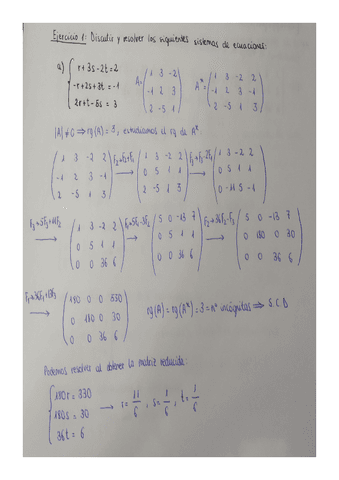 Ejercicio 1: Discutir y resolver los siguientes sistemas de ecuaciones:
a) { r+3s-2t=2
-r+2s+3t=-1
2r+t-5s=3
A= ( 1 3 -2
-1 2 3
2 -5 1 )
A*= ( 1 3 -2 2
-1 2 3 -1
2 -5 1 3 )
|A|≠0 ⇒ rg(A)=3, estudiamos el rg de A*.
( 1 3 -2 2
-1 2 3 -1
2 -5 1 3 ) F2→F2+F1 ( 1 3 -2 2
0 5 1 1
2 -5 1 3 ) F3→F3-2F1 ( 1 3 -2 2
0 5 1 1
0 -11 5 -1 )
F3→5F3+11F2 ( 1 3 -2 2
0 5 1 1
0 0 36 6 ) F1→5F1-3F2 ( 5 0 -13 7
0 5 1 1
0 0 36 6 ) F2→36F2-F3 ( 5 0 -13 7
0 180 0 30
0 0 36 6 )
F1→36F1+13F3 ( 180 0 0 330
0 180 0 30
0 0 36 6 ) rg(A)=rg(A*)=3=nº incógnitas ⇒ S.C.D
Podemos resolver al obtener la matriz reducida:
{ 180r=330
180s=30
36t=6 → r=11/6, s=1/6, t=1/6